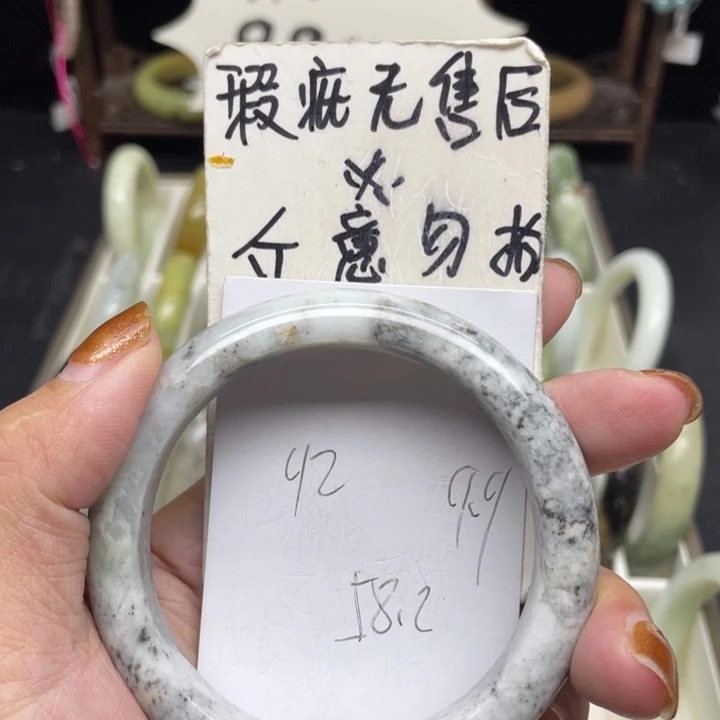 瑕疵无售后
介意勿拍
42
9.9
58.2